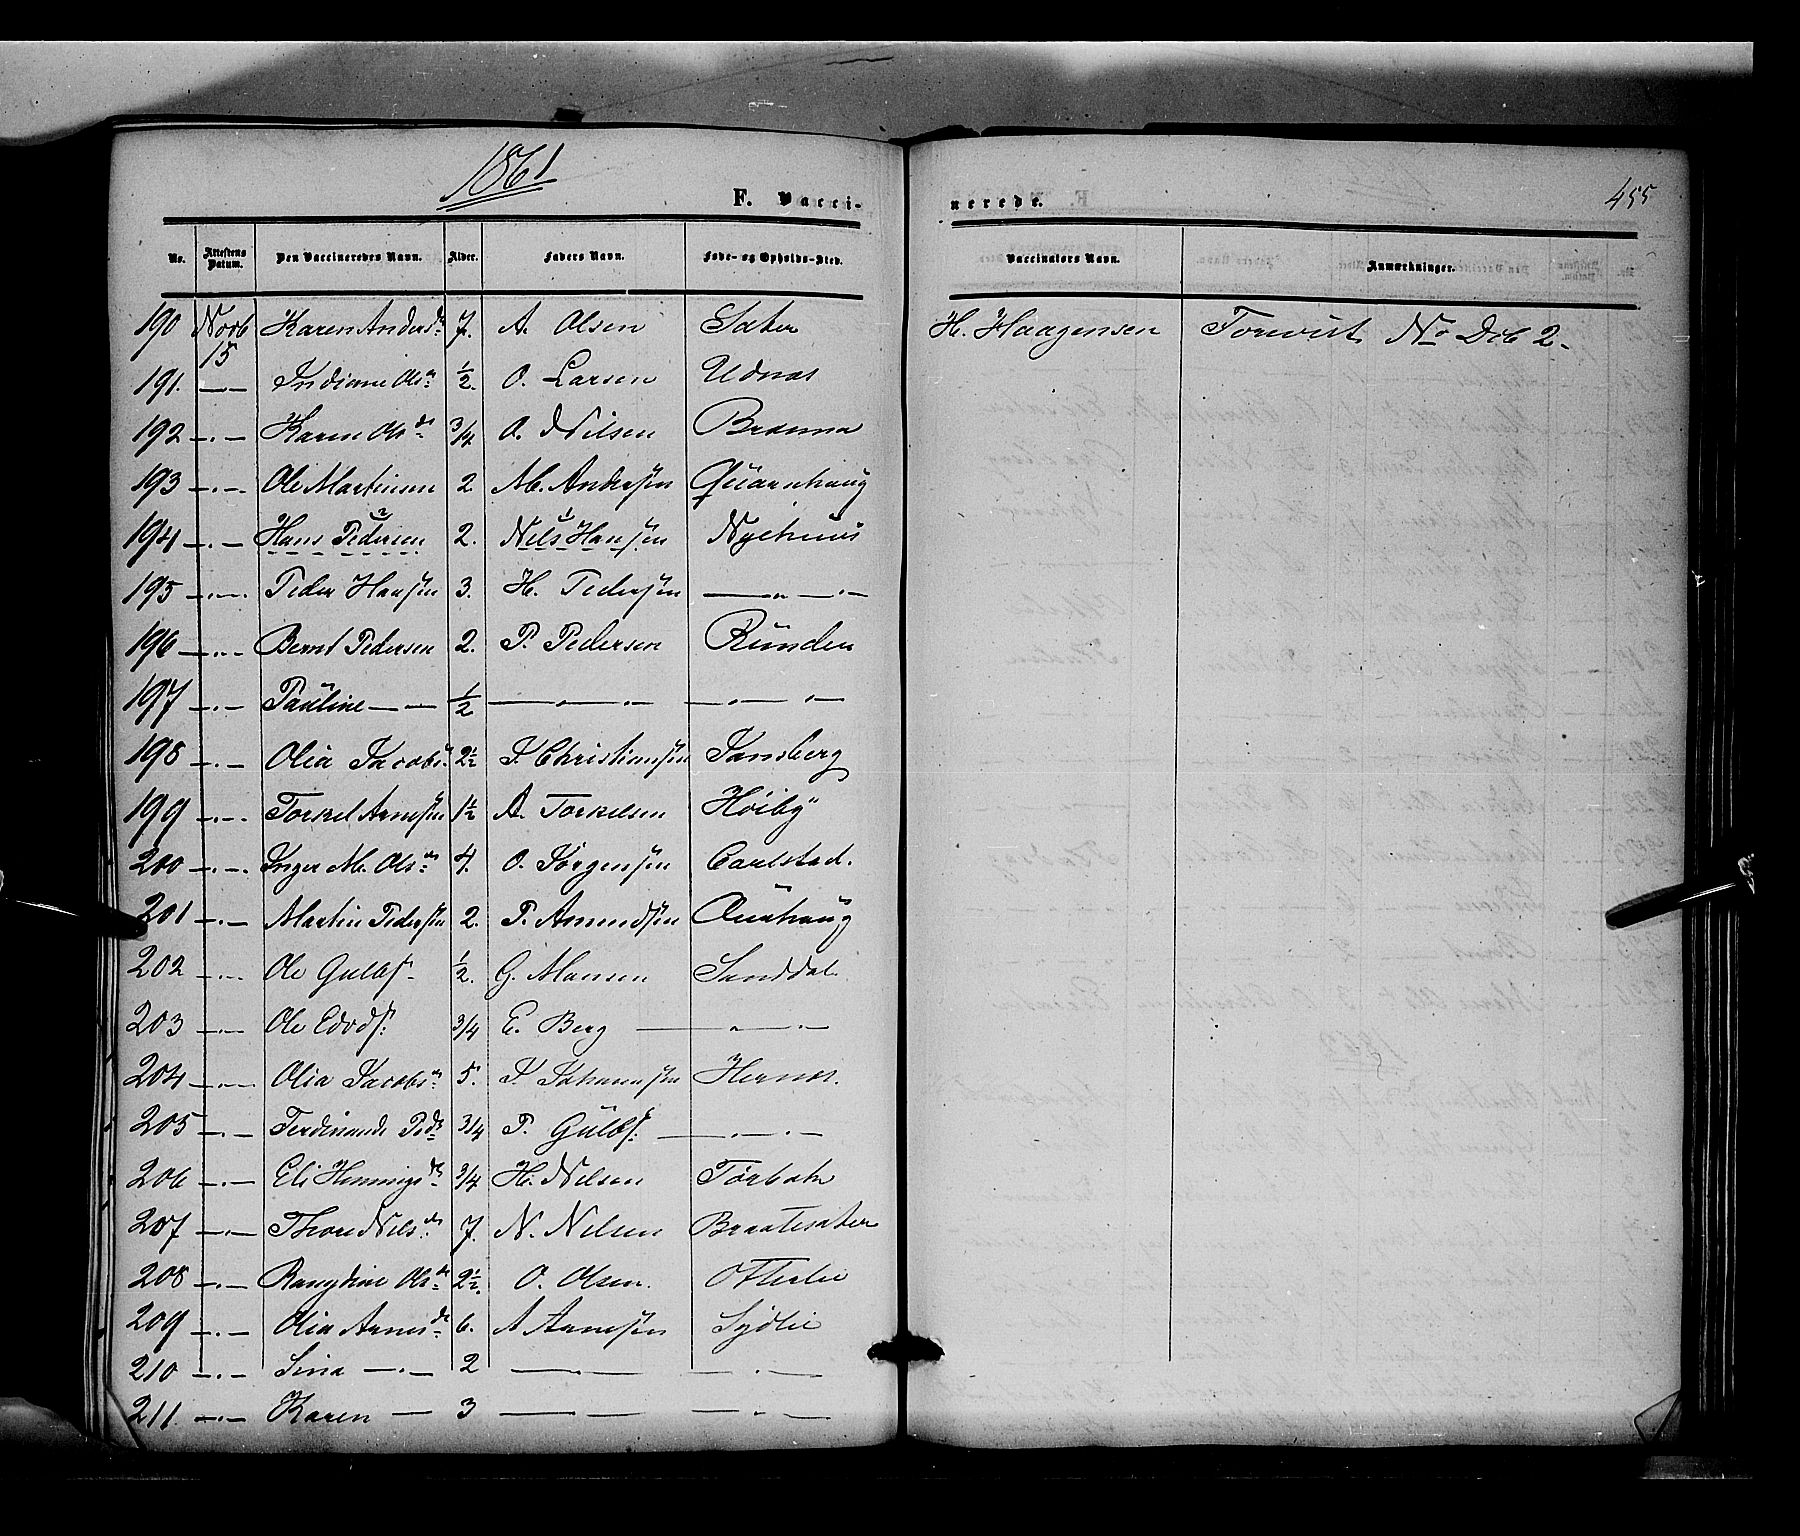 1861
F. Vacci- nerede. 455
No. Attestens Datum. Den Vaccineredes Navn. Alder. Faders Navn. Føde- og Opholds-Sted. Vaccinators Navn. Anmærkninger.
190 Novb 15 Karen Andersd 7. A. Olsen Sæter H. Haagensen No Dcb 2.
191. — Indiane Olsd ½. O. Larsen Udnæs
192 —„— Karen Olsd ¾ O. Nilsen Brænna
193 —„— Ole Martinsen 2. M. Andersen Quarnhaug
194 —„— Hans Pedersen 2. Nils Hansen Nyehuus
195 —„— Peder Hansen 3. H. Pedersen —„—„—
196 —„— Bernt Pedersen 2. P. Pedersen Runden
197 —„— Pauline — — ½ —„—„— —„—„—
198 —„— Olia Jacobs. 2½ J. Christiansen Sonsberg
199 —„— Torkel Arnesen 1½ A. Torkelsen Høiby
200 —„— Inger M. Olsd 4. O. Jørgensen Carlstad.
201 —„— Martin Pedersen 2. P. Amundsen Quahaug
202 —„— Ole Gulbs. ½. G. Mansen Sanddal
203 —„— Ole Edvds. ¾ E. Berg —„—„—
204 —„— Olia Jacobsd 5. J. Johannsen Hernæs.
205 —„— Ferdinande Pedsd ¾ P. Gulbs. —„—„—
206 —„— Eli Hemmingsd ¾ H. Nilsen
207 —„— Thore Nilsd. 7. N. Nilsen Braatesæter
208 —„— Rangdine Olsd 2½. O. Olsen. Otterlie
209 —„— Olia Arnesd 6. A Arnesen Sydlie
210 —„— Sina —„— 2 —„— — —„—„—
211. —„— Karen — 3 —„— — —„—„—